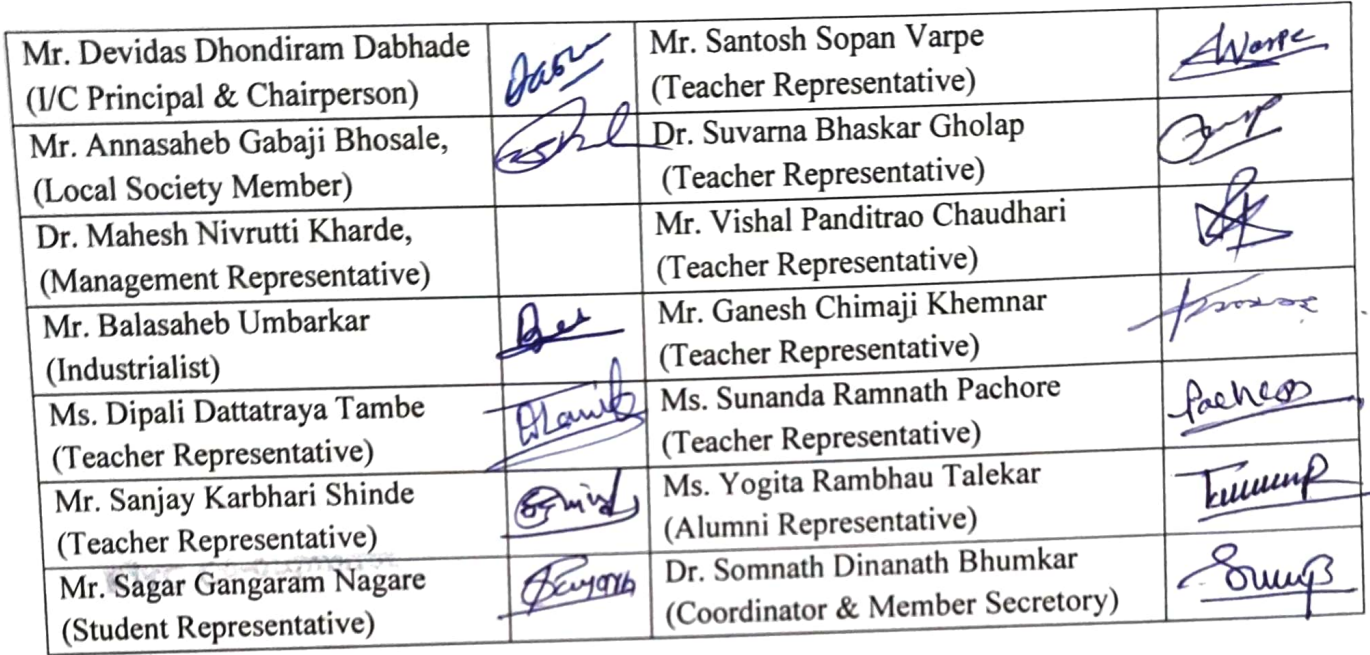 Mr. Devidas Dhondiram Dabhade
(I/C Principal & Chairperson)
Mr. Santosh Sopan Varpe
(Teacher Representative)
Mr. Annasaheb Gabaji Bhosale,
(Local Society Member)
Dr. Suvarna Bhaskar Gholap
(Teacher Representative)
Dr. Mahesh Nivrutti Kharde,
(Management Representative)
Mr. Vishal Panditrao Chaudhari
(Teacher Representative)
Mr. Balasaheb Umbarkar
(Industrialist)
Mr. Ganesh Chimaji Khemnar
(Teacher Representative)
Ms. Dipali Dattatraya Tambe
(Teacher Representative)
Ms. Sunanda Ramnath Pachore
(Teacher Representative)
Mr. Sanjay Karbhari Shinde
(Teacher Representative)
Ms. Yogita Rambhau Talekar
(Alumni Representative)
Mr. Sagar Gangaram Nagare
(Student Representative)
Dr. Somnath Dinanath Bhumkar
(Coordinator & Member Secretory)